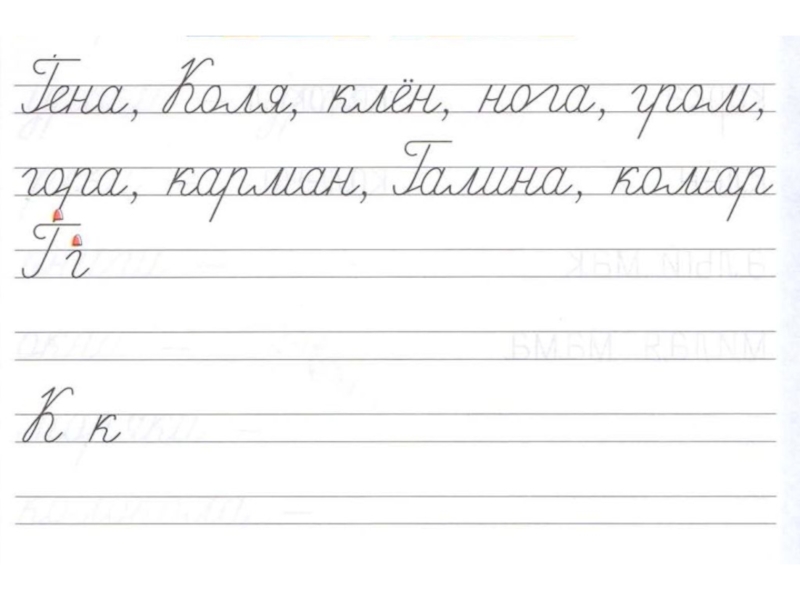 Гена, Коля, клён, нога, гром,
гора, карман, Галина, комар
Гг
К к